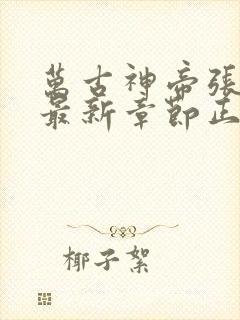 萬古神帝張
最新章節正
椰子絮